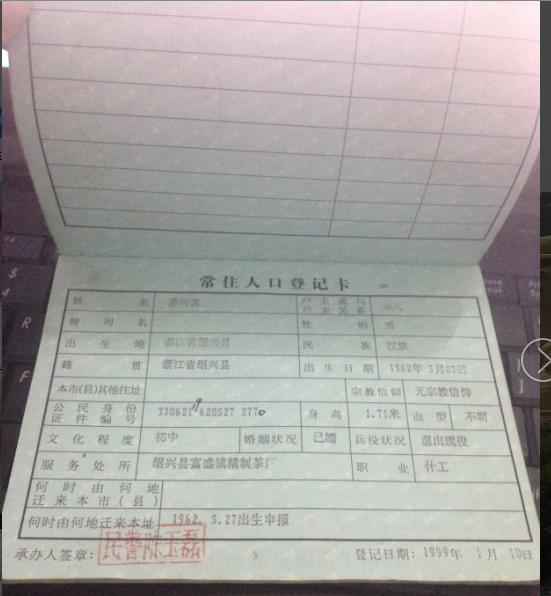 常住人口登记卡
姓名 户主或与户主关系
曾用名 性别 男
出生地 浙江省绍兴县 民族 汉族
籍贯 浙江省绍兴县 出生日期 1962年 5月27日
本市(县)其他住址 宗教信仰 无宗教信仰
公民身份证件编号 330621 19 620527 2770 身高 1.71米 血型 不明
文化程度 初中 婚姻状况 已婚 兵役状况 退出现役
服务处所 绍兴县富盛镇精制茶厂 职业 什工
何时由何地迁来本市(县)
何时由何地迁来本址 1962. 5.27出生申报
承办人签章: 民警陈玉磊 登记日期: 1999年 1月 10日
R
F